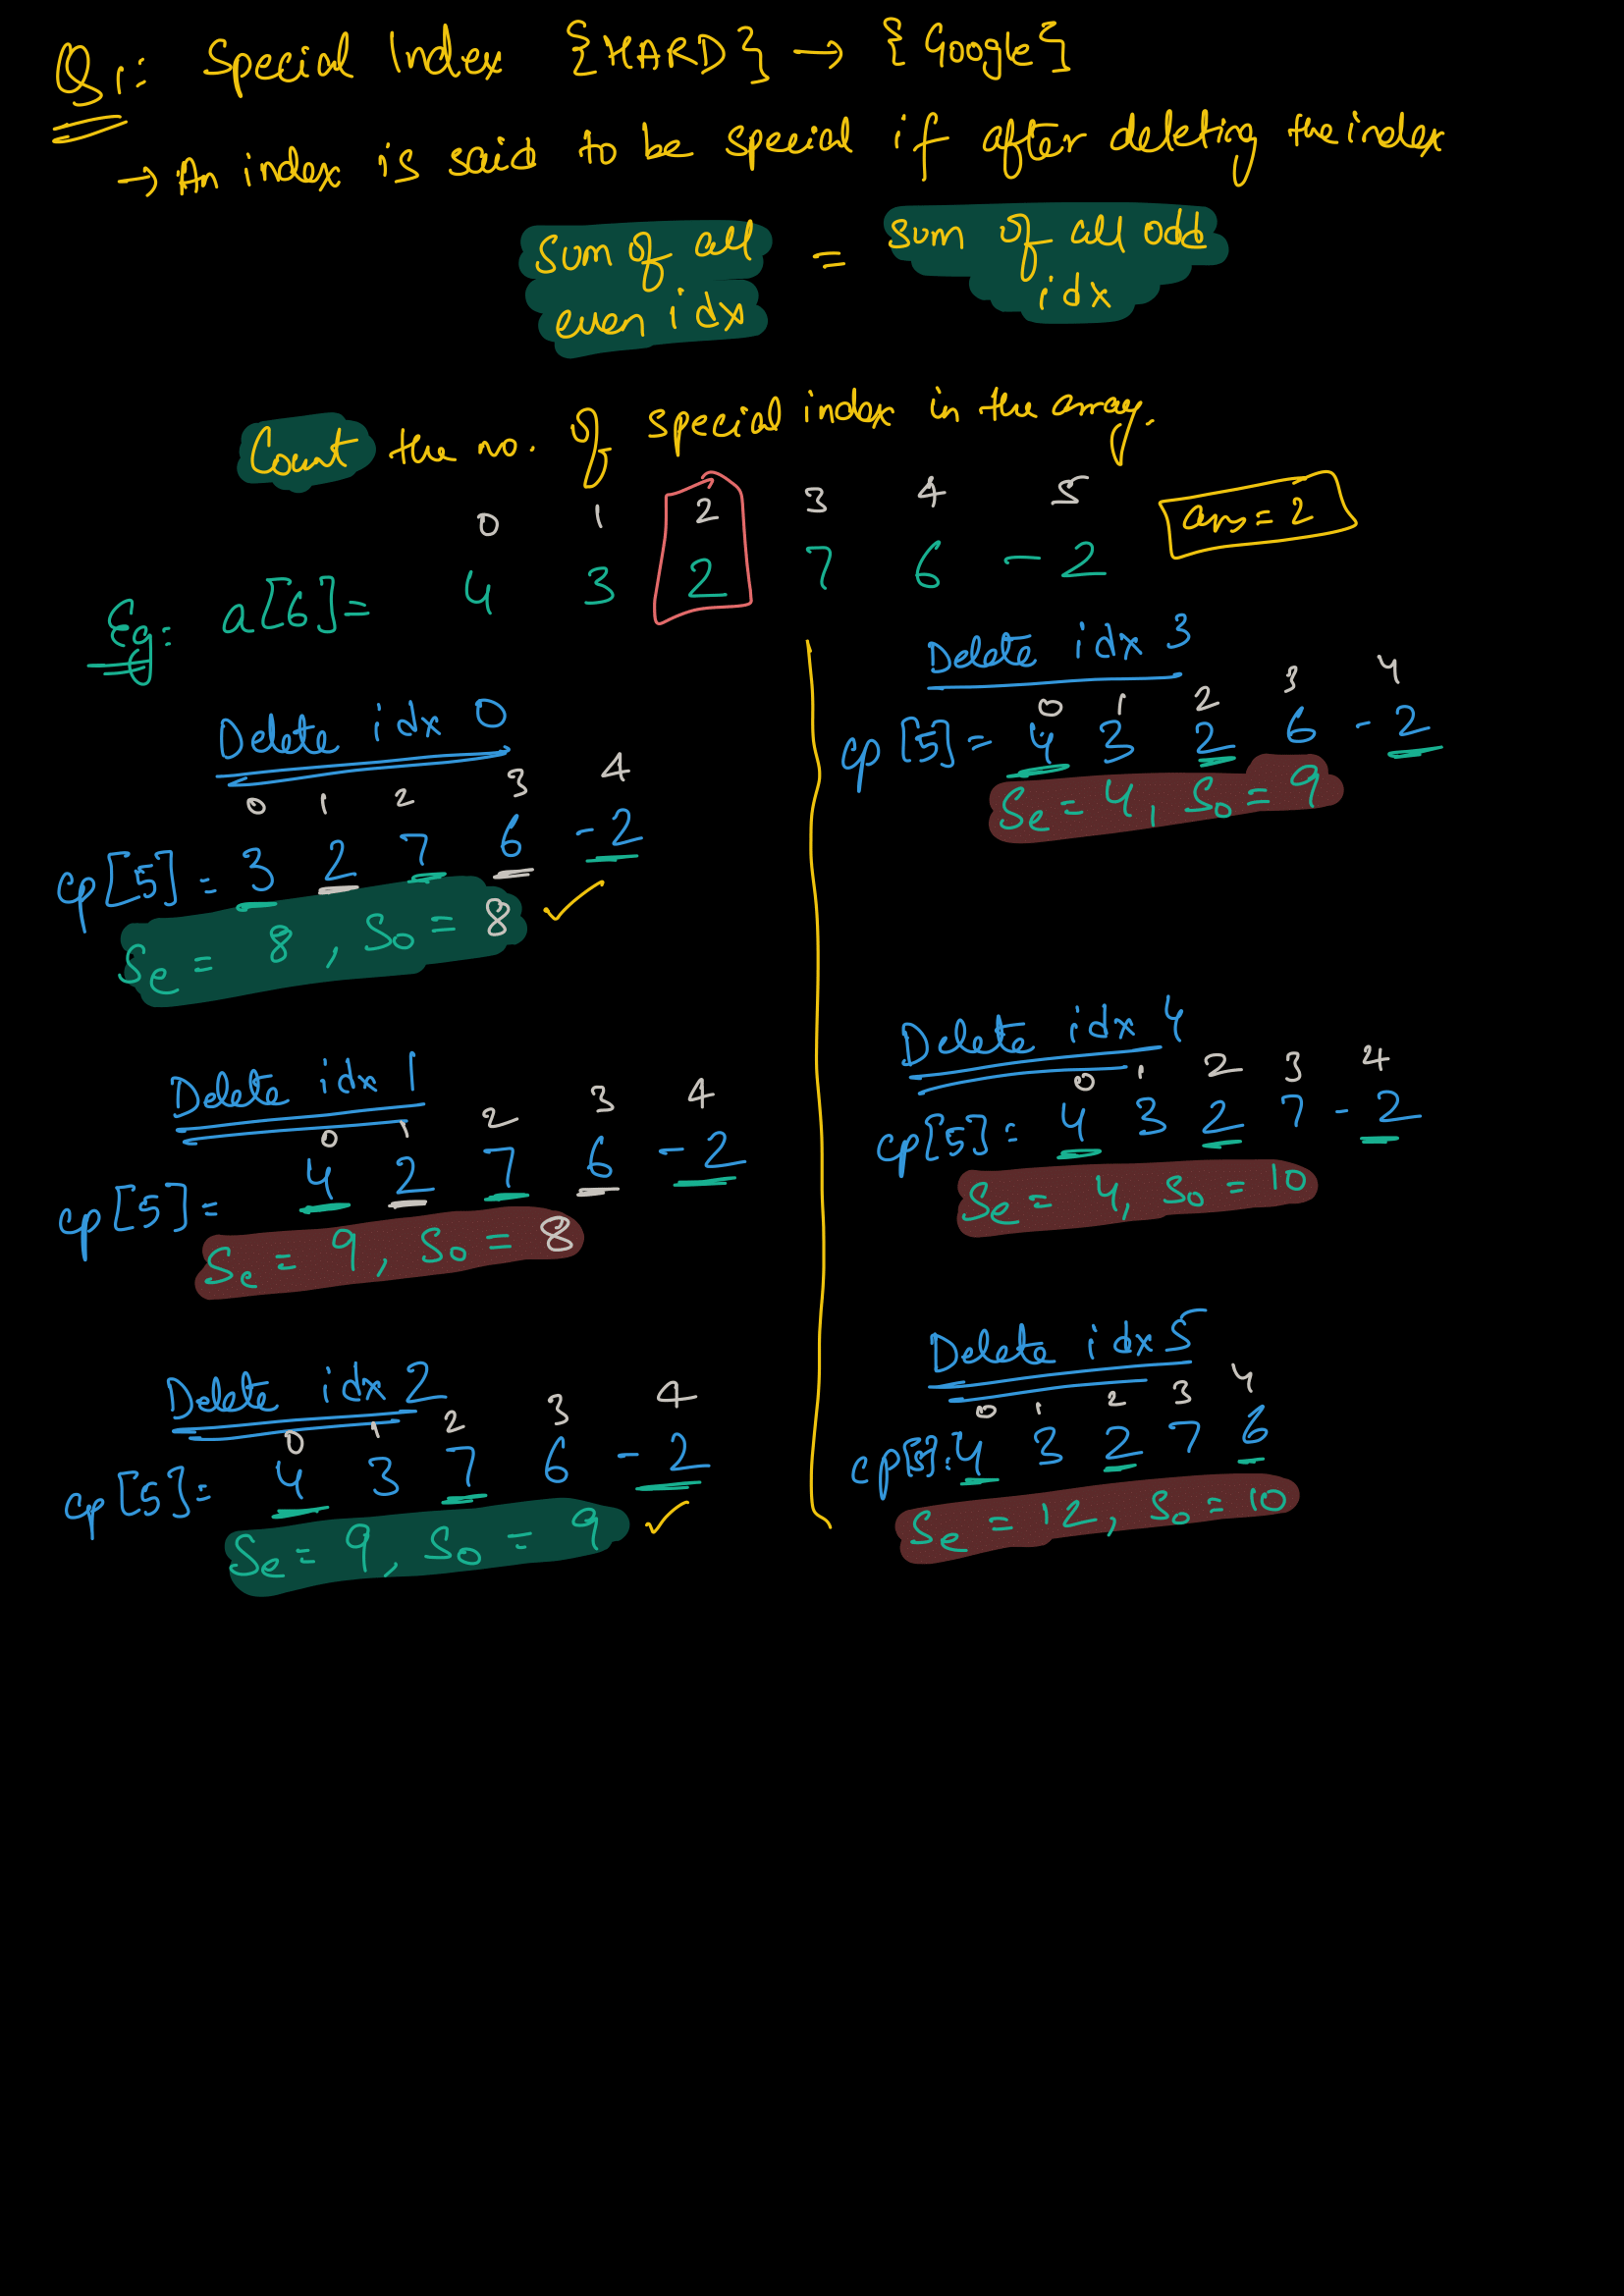 Q1: Special Index {HARD} → {Google}
→ An index is said to be special if after deleting the index
sum of all even idx = sum of all odd idx
Count the no. of special index in the array.
0 1 2 3 4 5
Eg: a[6] = 4 3 2 7 6 -2
ans = 2
Delete idx 0
0 1 2 3 4
cp[5] = 3 2 7 6 -2
Se = 8, So = 8 ✓
Delete idx 1
0 1 2 3 4
cp[5] = 4 2 7 6 -2
Se = 9, So = 8
Delete idx 2
0 1 2 3 4
cp[5] = 4 3 7 6 -2
Se = 9, So = 9 ✓
Delete idx 3
0 1 2 3 4
cp[5] = 4 3 2 6 -2
Se = 4, So = 9
Delete idx 4
0 1 2 3 4
cp[5] = 4 3 2 7 -2
Se = 4, So = 10
Delete idx 5
0 1 2 3 4
cp[5]: 4 3 2 7 6
Se = 12, So = 10